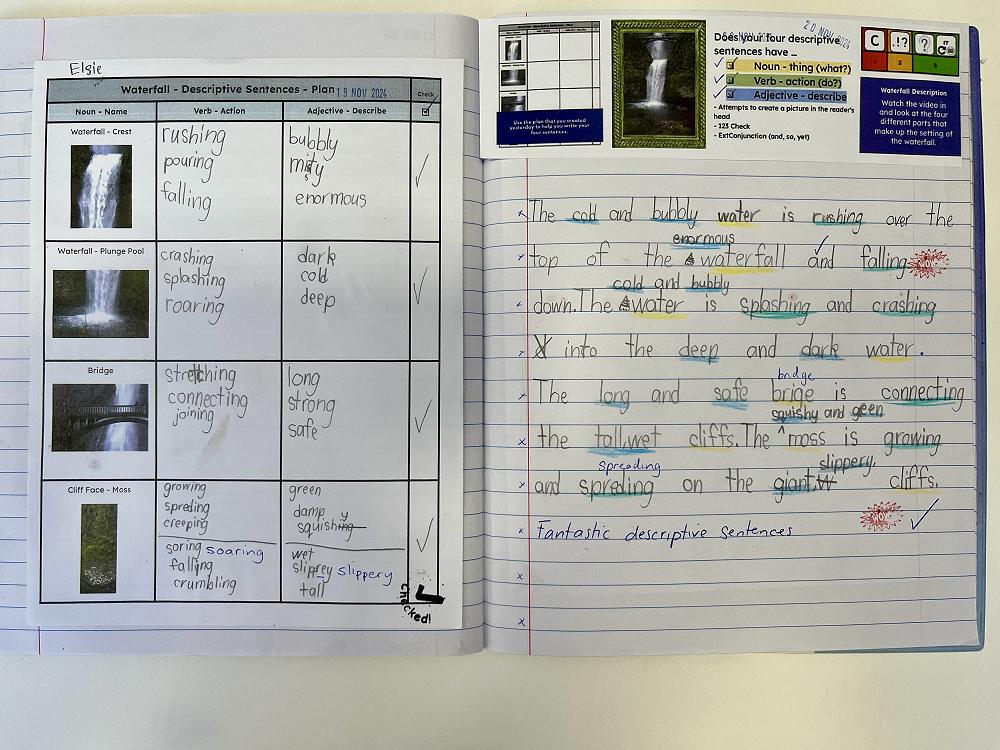 Elsie
Waterfall - Descriptive Sentences - Plan 19 NOV 2024
Check
Noun - Name Verb - Action Adjective - Describe
Waterfall - Crest
rushing
pouring
falling
bubbly
misty
enormous
Waterfall - Plunge Pool
crashing
splashing
roaring
dark
cold
deep
Bridge
stretching
connecting
joining
long
strong
safe
Cliff Face - Moss
growing
spreding
creeping
soring soaring
falling
crumbling
green
damp
squishing y
wet
slipprey slippery
tall
Checked!
Use the plan that you created
yesterday to help you write your
four sentences.
20 NOV 2024
Does your four descriptive
sentences have _
Noun - thing (what?)
Verb - action (do?)
Adjective - describe
- Attempts to create a picture in the reader's
head
- 123 Check
- ExtConjunction (and, so, yet)
C .!? ?
1 2 3
Waterfall Description
Watch the video in
and look at the four
different parts that
make up the setting of
the waterfall.
The cold and bubbly water is rushing over the
enormous
top of the waterfall and falling
cold and bubbly
down. The water is splashing and crashing
into the deep and dark water.
bridge
The long and safe brige is connecting
squishy and geen
the tall, wet cliffs. The moss is growing
spreading slippery,
and spreding on the giant, cliffs.
Fantastic descriptive sentences